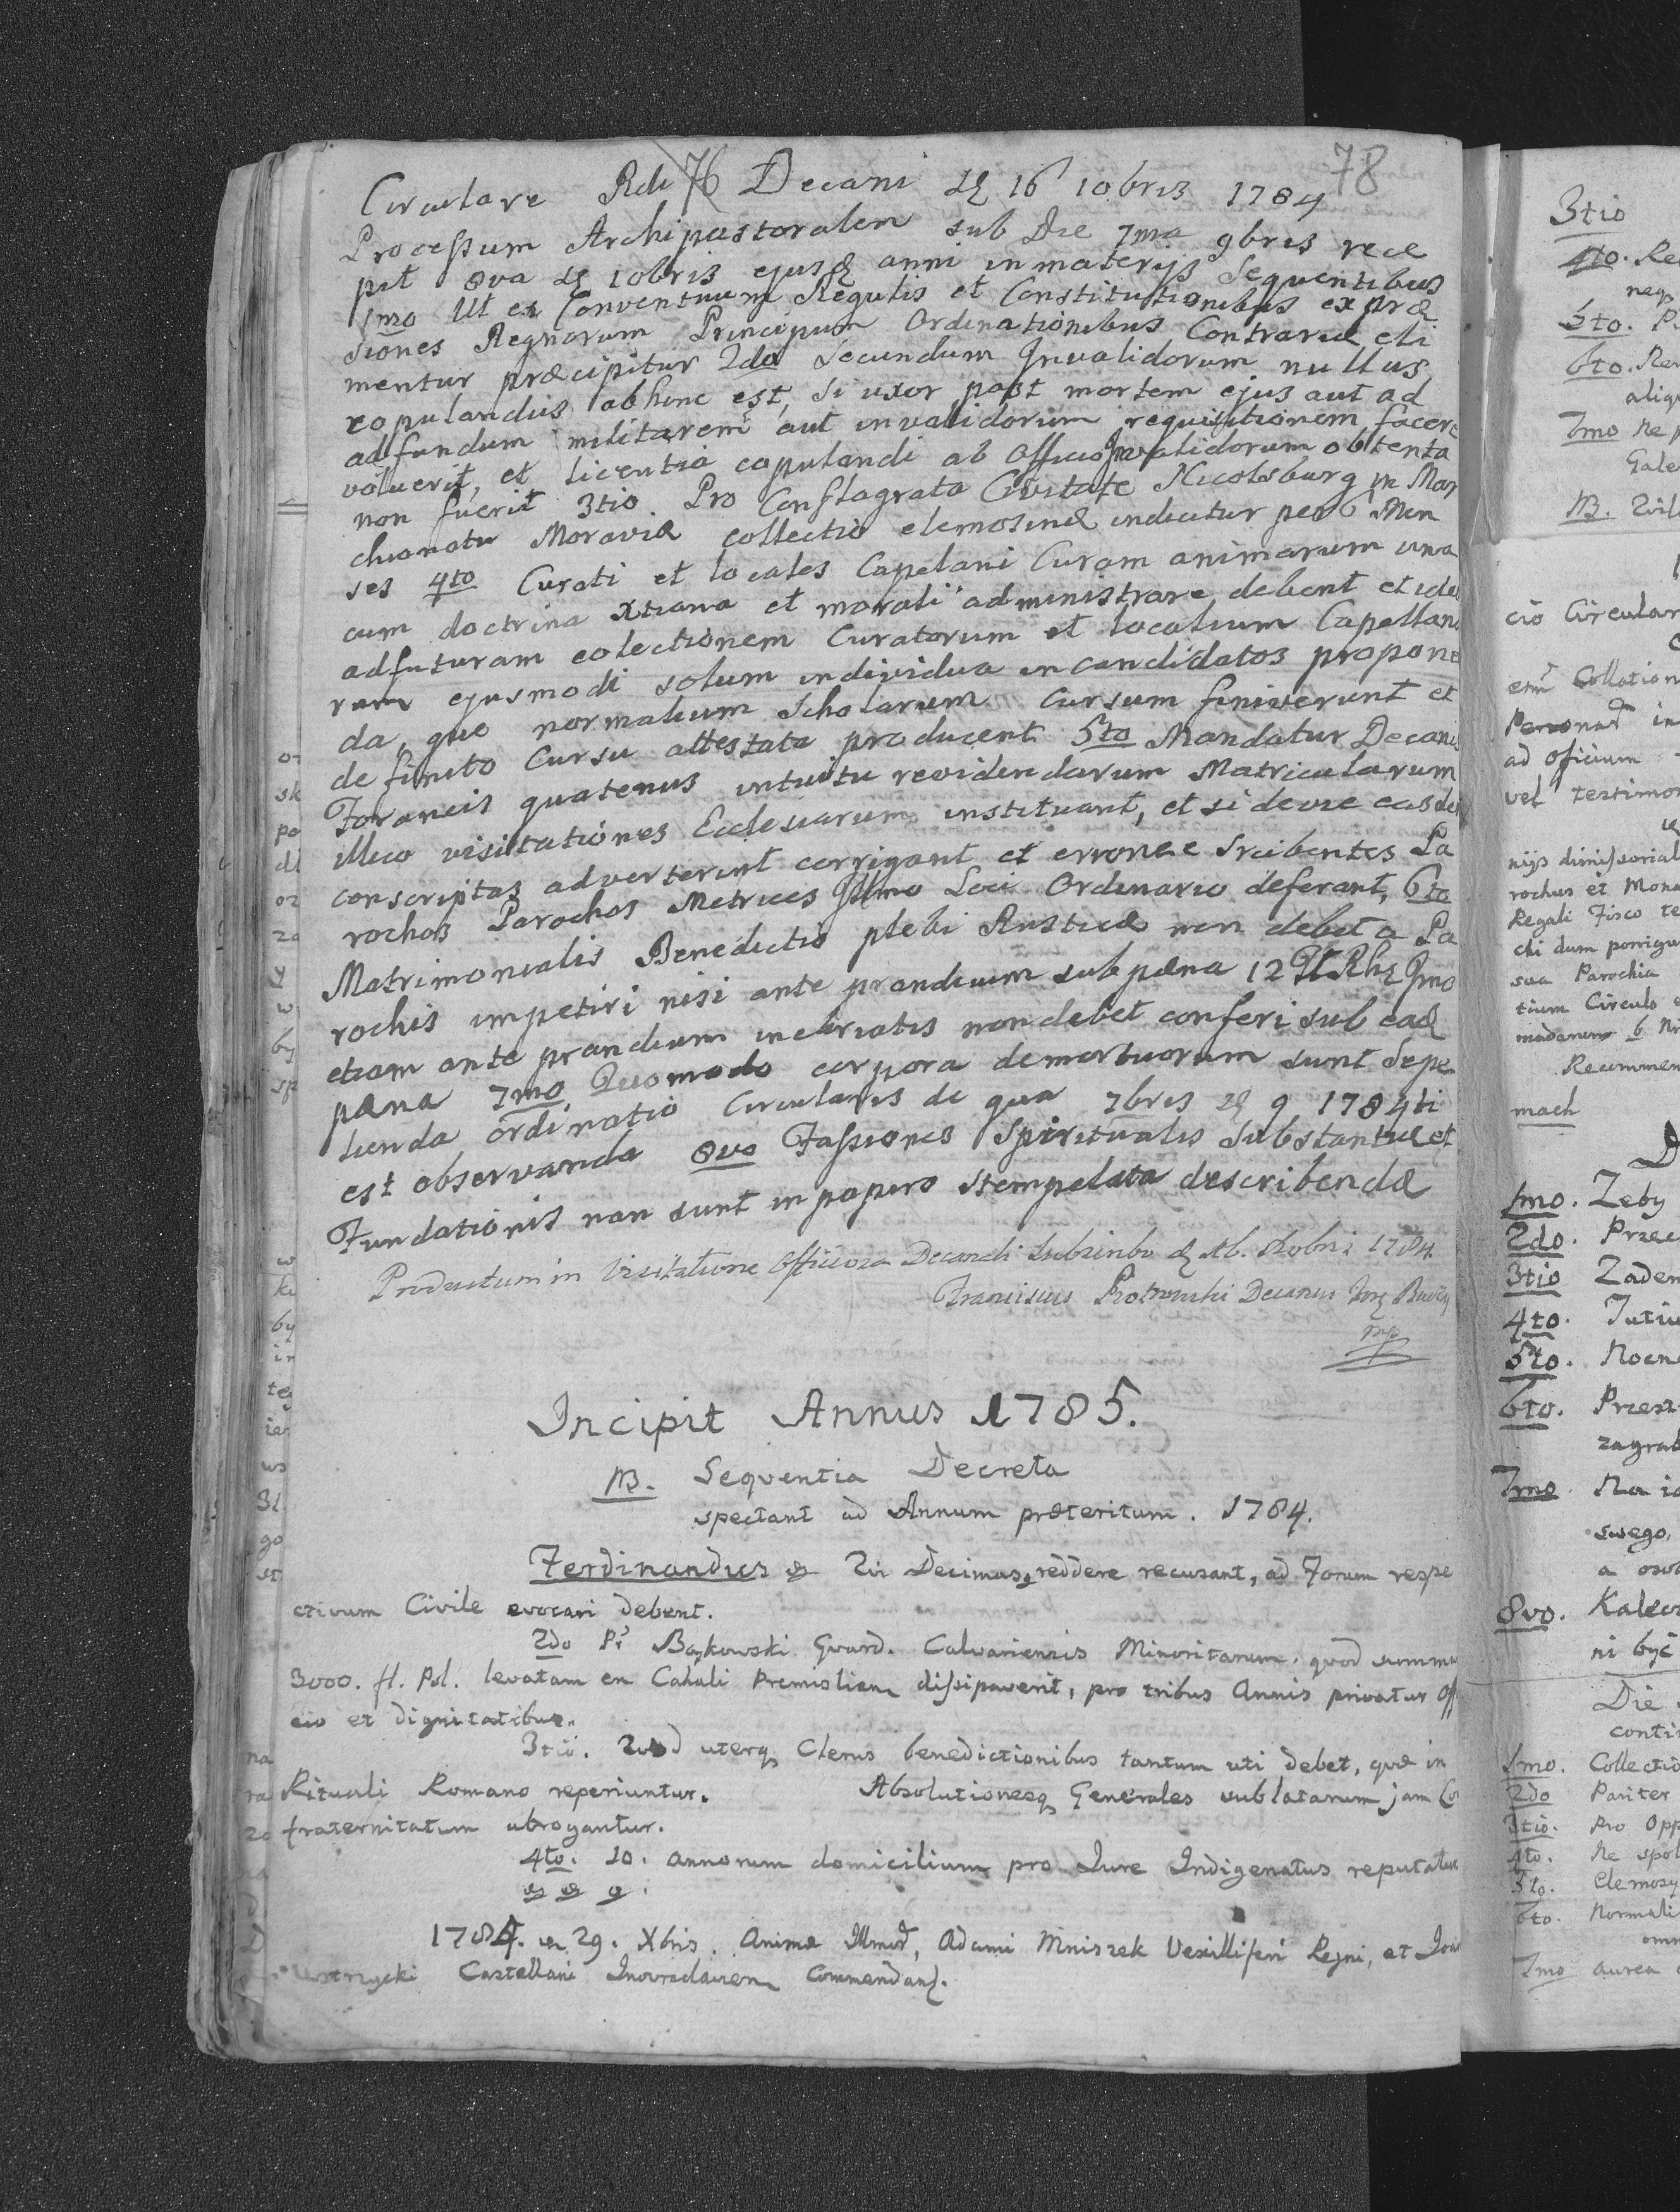 78
Circulare Rdi 76 Decani 16 10bris 1784
Processum Archipastoralem sub Die 7ma 9bris rece
pit 8va 10bris ejusd anni in materijs Sequentibus
1mo Ut ex Conventuum Regulis et Constitutionibus expræ
siones Regnorum Principum Ordinationibus Contrariæ eli
mentur præcipitur 2do Secundum Invalidorum nullus
copulandus abhinc est, si uxor post mortem ejus aut ad
adfundum militarem aut invalidorum requisitionem facere
voluerit, et licentia copulandi ab officio Invalidorum obtenta
non fuerit 3tio. Pro Conflagrata Civitate Nicolsburg in Mar
chionatu Moraviæ collectio elemosinæ indicitur per 6 Men
ses 4to Curati et locales Capelani Curam animarum una
cum doctrina Xtiana et morali administrare debent et ideo
adfuturam colectionem Curatorum et localium Capellano
rum ejusmodi solum individua in candidatos propone
da, que normalium Scholarum Cursum finiverunt et
de finito Cursu attestata producent 5to Mandatur Decanis
Foraneis quatenus intuitu revidendarum Matricularum
illico visitationes Ecclesiarum instituant, et si devie easdem
conscriptas adverterint corrigant et erronee Scribentes Pa
rochos Parochos Metrices Illmo Loci Ordinario deferant, 6to
Matrimonialis Benedictio plebi Rusticæ non debet a Pa
rochis impetiri nisi ante prandium sub pæna 12 Rhe Imo
etiam ante prandium inebriatis non debet conferi sub ead
pæna 7mo Quomodo corpora demortuorum sunt Sepe
lienda ordinatio Circularis de qua 7bris 9 1784ti
est observanda 8vo Fassiones Spiritualis Substantiæ et
Fundationis non sunt in papiro stempelata describendæ
Productum in Visitatione Officiosa Decanali 1784.
Franciscus Piotrowski Decanus
mp
Incipit Annus 1785.
NB. Seqventia Decreta
spectant ad Annum præteritum. 1784.
Ferdinandus & Qui Decimas reddere recusant, ad Forum respe
ctivum Civile evocari debent.
2do Pr Bąkowski Gvard. Calvariensis Minoritarum. qvod summa
3000. fl. Pol. levatam ex Cahali Premislien dissipaverit, pro tribus Annis privatur Off
cio et dignitatibus.
3tio. Quod uterq Clerus benedictionibus tantum uti debet, qvæ in
Rituali Romano reperiuntur. Absolutionesq Generales sublatarum jam Co
fraternitatum abrogantur.
4to. 10. annorum domicilium pro Jure Indigenatus reputatur
1784. 29. Xbris. Animæ Illmor, Adami Mniszek Vexilliferi Regni, et Joan
Ustrzycki Castellani Inowradlavien Commendant.
3tio
4to. Re
neq
5to. P
6to. Re
aliqu
7mo Ne p
Gale
NB.
cio Circular
em Collation
Personar in
ad oficium
vel testimon
nijs dimissorial
rochus et Mona
Regali Fisco te
chi dum porrigu
sua Parochia
tium Circulo
Recommen
mach
1mo. Zeby
2do. Przec
3tio Zaden
4to. Jutiu
5to. Nocn
6to. Przest
zagrad
7mo. Na
swego,
a osob
8vo. Kalec
ni być
Die
contin
1mo. Collectio
2do Pariter
3tio. Pro Opp
4to. Ne spol
5to. Elemosy
6to. Normali
omn
7mo aurea